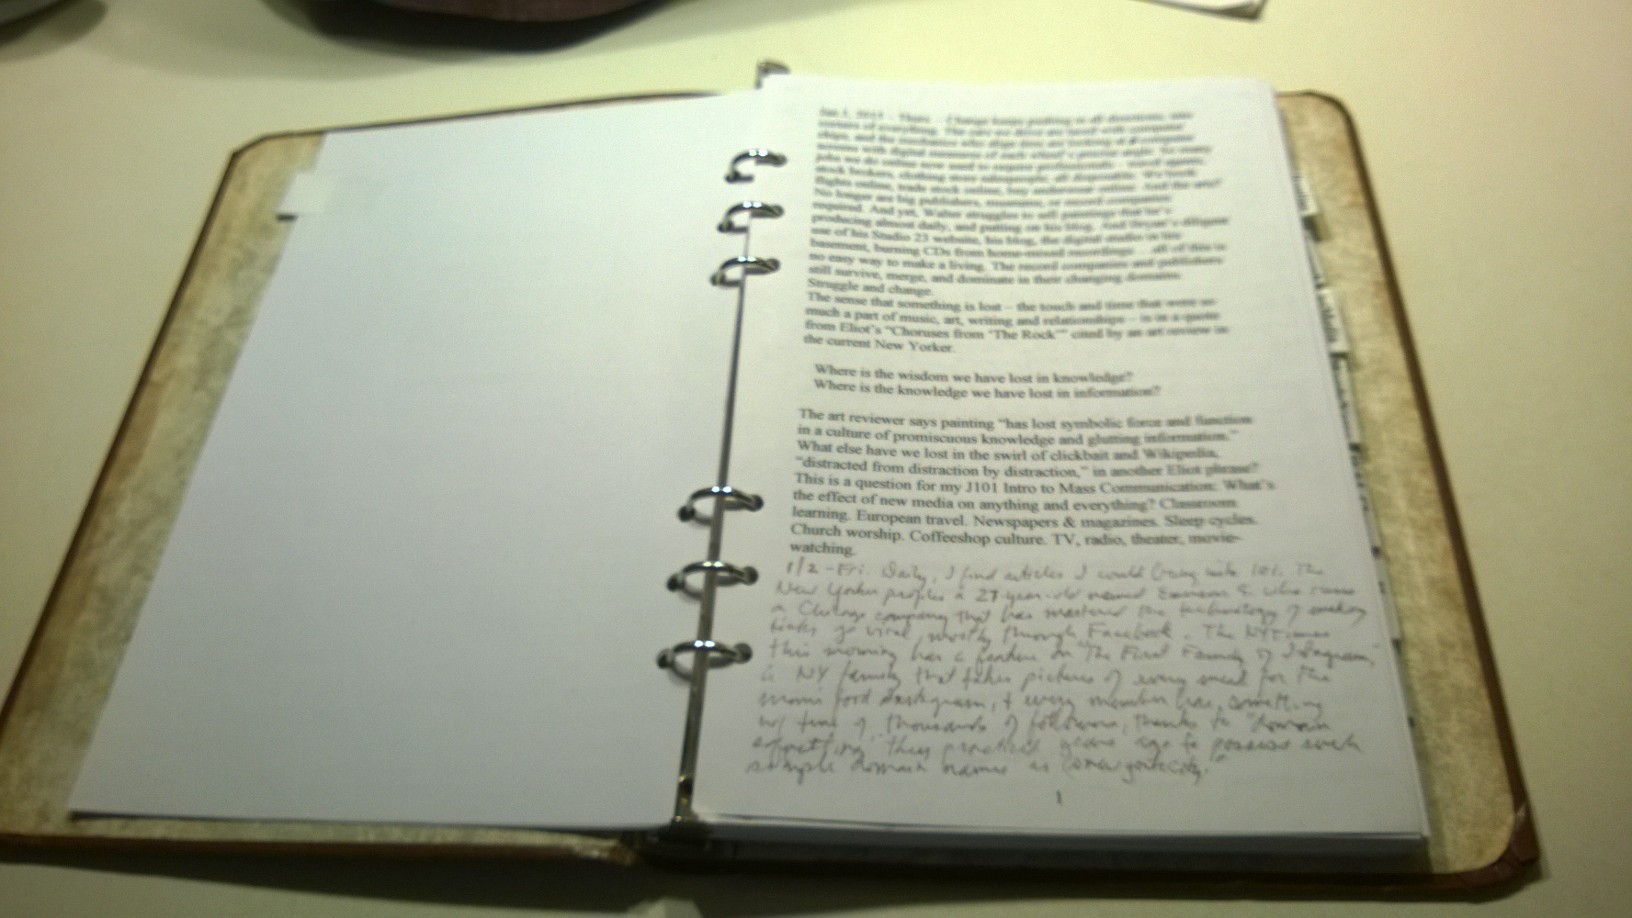 Jan 1, 2015 - Thurs. - Change keeps pushing in all directions, into
corners of everything. The cars we drive are laced with computer
chips, and the mechanics who align tires are looking at computer
screens with digital measures of each wheel's precise angle. So many
jobs we do online now used to require professionals - travel agents,
stock brokers, clothing store salespeople, all disposable. We book
flights online, trade stock online, buy underwear online. And the arts?
No longer are big publishers, museums, or record companies
required. And yet, Walter struggles to sell paintings that he's
producing almost daily, and putting on his blog. And Bryan's diligent
use of his Studio 23 website, his blog, the digital studio in his
basement, burning CDs from home-mixed recordings - all of this is
no easy way to make a living. The record companies and publishers
still survive, merge, and dominate in their changing domains.
Struggle and change.
The sense that something is lost – the touch and time that were so
much a part of music, art, writing and relationships – is in a quote
from Eliot's "Choruses from 'The Rock'" cited by an art review in
the current New Yorker.
Where is the wisdom we have lost in knowledge?
Where is the knowledge we have lost in information?
The art reviewer says painting "has lost symbolic force and function
in a culture of promiscuous knowledge and glutting information."
What else have we lost in the swirl of clickbait and Wikipedia,
"distracted from distraction by distraction," in another Eliot phrase?
This is a question for my J101 Intro to Mass Communication: What's
the effect of new media on anything and everything? Classroom
learning. European travel. Newspapers & magazines. Sleep cycles.
Church worship. Coffeeshop culture. TV, radio, theater, movie-
watching.
1/2 - Fri. Daily, I find articles I could bring into 101. The
New Yorker profiles a 27-year-old named who runs
a Chicago company that has mastered the technology of making
links go viral, mostly through Facebook. The NYTimes
this morning has a feature on "The First Family of Instagram,"
a NY family that takes pictures of every meal for the
mom's food Instagram, & every member has something
w/ tens of thousands of followers, thanks to "domain
squatting" they practiced years ago to possess such
simple domain names as "newyorkcity."
1